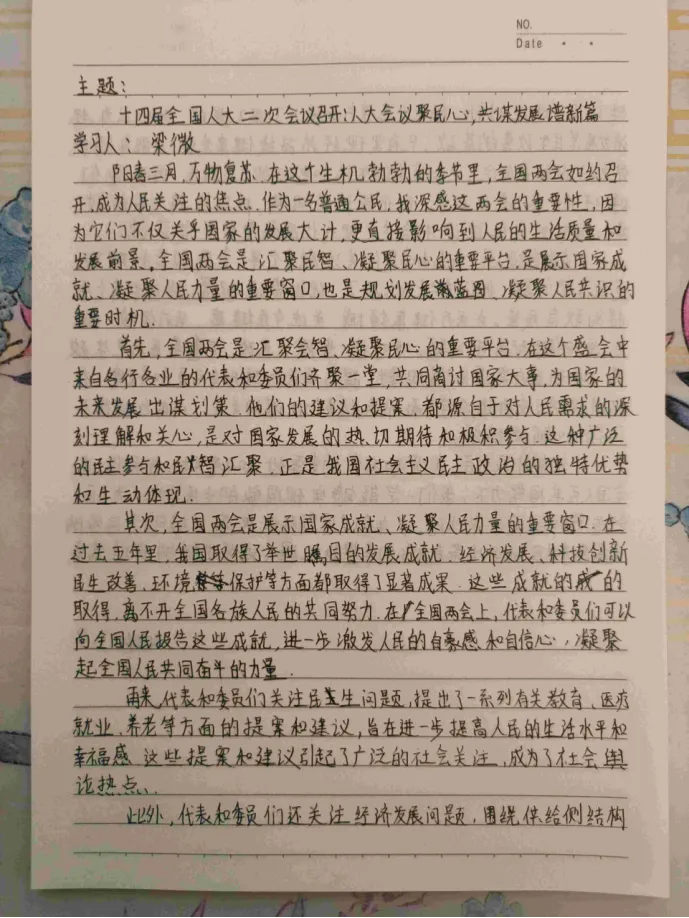 NO.
Date
主题:
十四届全国人大二次会议召开:人大会议聚民心,共谋发展谱新篇
学习人:梁微
阳春三月,万物复苏.在这个生机勃勃的季节里,全国两会如约召
开,成为人民关注的焦点.作为一名普通公民,我深感这两会的重要性,因
为它们不仅关乎国家的发展大计,更直接影响到人民的生活质量和
发展前景。全国两会是汇聚民智、凝聚民心的重要平台,是展示国家成
就、凝聚人民力量的重要窗口,也是规划发展蓝图、凝聚人民共识的
重要时机.
首先,全国两会是汇聚会智、凝聚民心的重要平台.在这个盛会中
来自各行各业的代表和委员们齐聚一堂,共同商讨国家大事,为国家的
未来发展出谋划策.他们的建议和提案,都源自于对人民需求的深
刻理解和关心,是对国家发展的热切期待和极积参与.这种广泛
的民主参与和民智汇聚,正是我国社会主义民主政治的独特优势
和生动体现.
其次,全国两会是展示国家成就、凝聚人民力量的重要窗口.在
过去五年里,我国取得了举世瞩目的发展成就.经济发展、科技创新
民生改善、环境保护等方面都取得了显著成果.这些成就的的
取得,离不开全国各族人民的共同努力.在全国两会上,代表和委员们可以
向全国人民报告这些成就,进一步激发人民的自豪感和自信心,凝聚
起全国人民共同奋斗的力量.
再来,代表和委员们关注民生问题,提出了一系列有关教育、医疗
就业、养老等方面的提案和建议,旨在进一步提高人民的生活水平和
幸福感.这些提案和建议引起了广泛的社会关注,成为了社会舆
论热点.、
此外,代表和委员们还关注经济发展问题,围绕供给侧结构